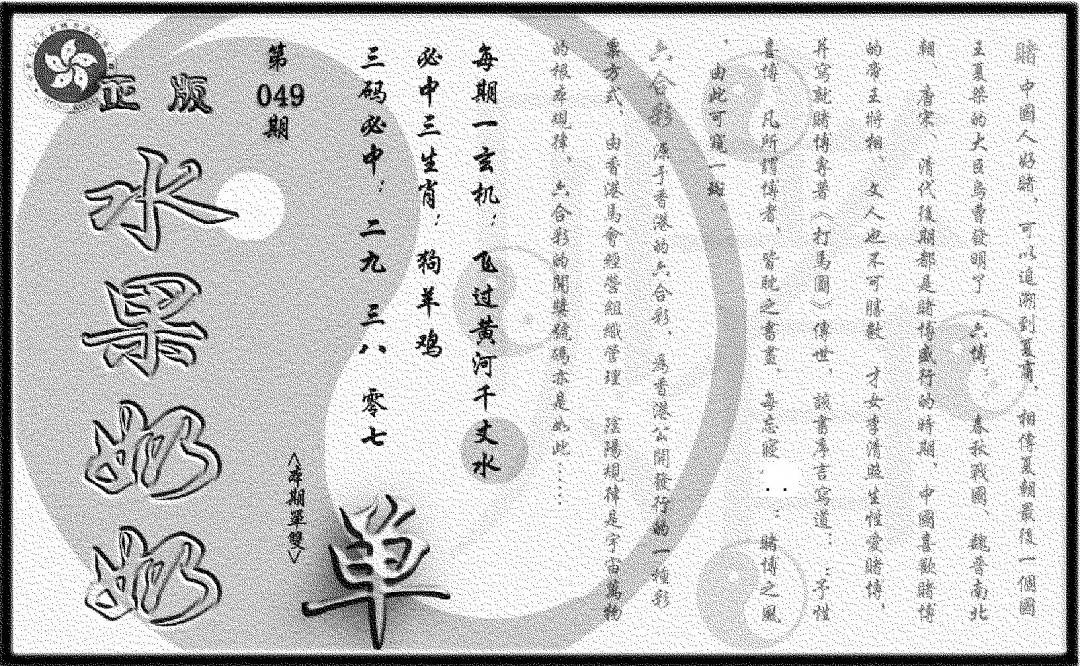 賭中國人好賭，可以追溯到夏商，相傳夏朝最後一個國
王夏桀的大臣烏曹發明了：六博；春秋戰國、魏晉南北
朝、唐宋、清代後期都是賭博盛行的時期，中國喜歡賭博
的帝王將相、文人也不可勝數 才女李清照生性愛賭博，
并寫就賭博專著〈打馬圖〉傳世，該書序言寫道：：予性
喜博，凡所謂博者，皆耽之晝，每忘寢..：賭博之風
，由此可窺一斑。
六合彩 源于香港的六合彩，為香港公開發行的一種彩
票方式，由香港馬會經營組織管理 陰陽相律是宇宙萬物
的根本規律，六合彩的開獎號碼亦是如此……
每期一玄机：飞过黄河千丈水
必中三生肖：狗羊鸡
三码必中：二九 三八 零七
第
049
期
<本期單雙>
单
正版
水果奶奶